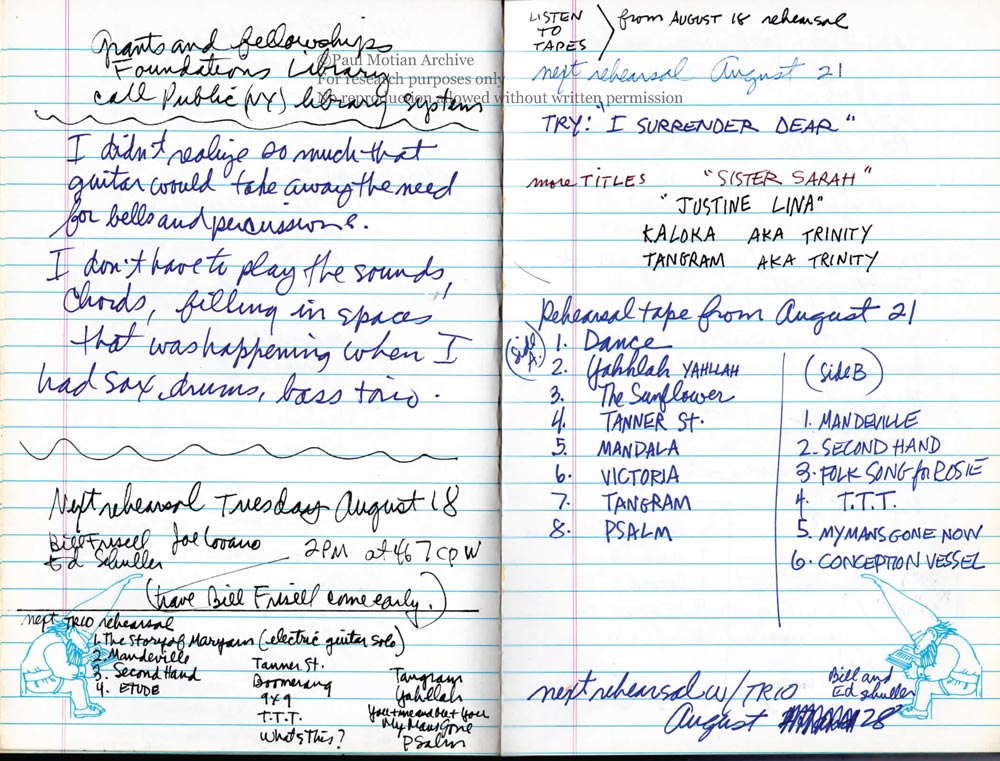 grants and fellowships
Foundations Library
call Public (NY) library system
©Paul Motian Archive
For research purposes only
No reproduction allowed without written permission
I didn't realize so much that
guitar would take away the need
for bells and percussions.
I don't have to play the sounds,
chords, filling in spaces
that was happening when I
had sax, drums, bass trio.
Next rehearsal Tuesday August 18
Bill Frisell Joe Lovano
Ed Schuller
2PM at 467 CPW
(have Bill Frisell come early.)
next TRIO rehearsal
1. The Story of Maryam (electric guitar solo)
2. Mandeville
3. Second Hand
4. ETUDE
Tanner St.
Boomerang
9x9
T.T.T.
What's This?
Tangram
Yahllah
My Mans Gone
Psalm
LISTEN
TO
TAPES
from AUGUST 18 rehearsal
next rehearsal August 21
TRY: "I SURRENDER DEAR"
more TITLES "SISTER SARAH"
"JUSTINE LINA"
KALOKA AKA TRINITY
TANGRAM AKA TRINITY
Rehearsal tape from August 21
(Side A.)
1. Dance
2. Yahhlah YAHLLAH
3. The Sunflower
4. TANNER St.
5. MANDALA
6. VICTORIA
7. TANGRAM
8. PSALM
(Side B)
1. MANDEVILLE
2. SECOND HAND
3. FOLK SONG for ROSIE
4. T.T.T.
5. MY MANS GONE NOW
6. CONCEPTION VESSEL
next rehearsal w/TRIO
Bill and
Ed Schuller
August 28